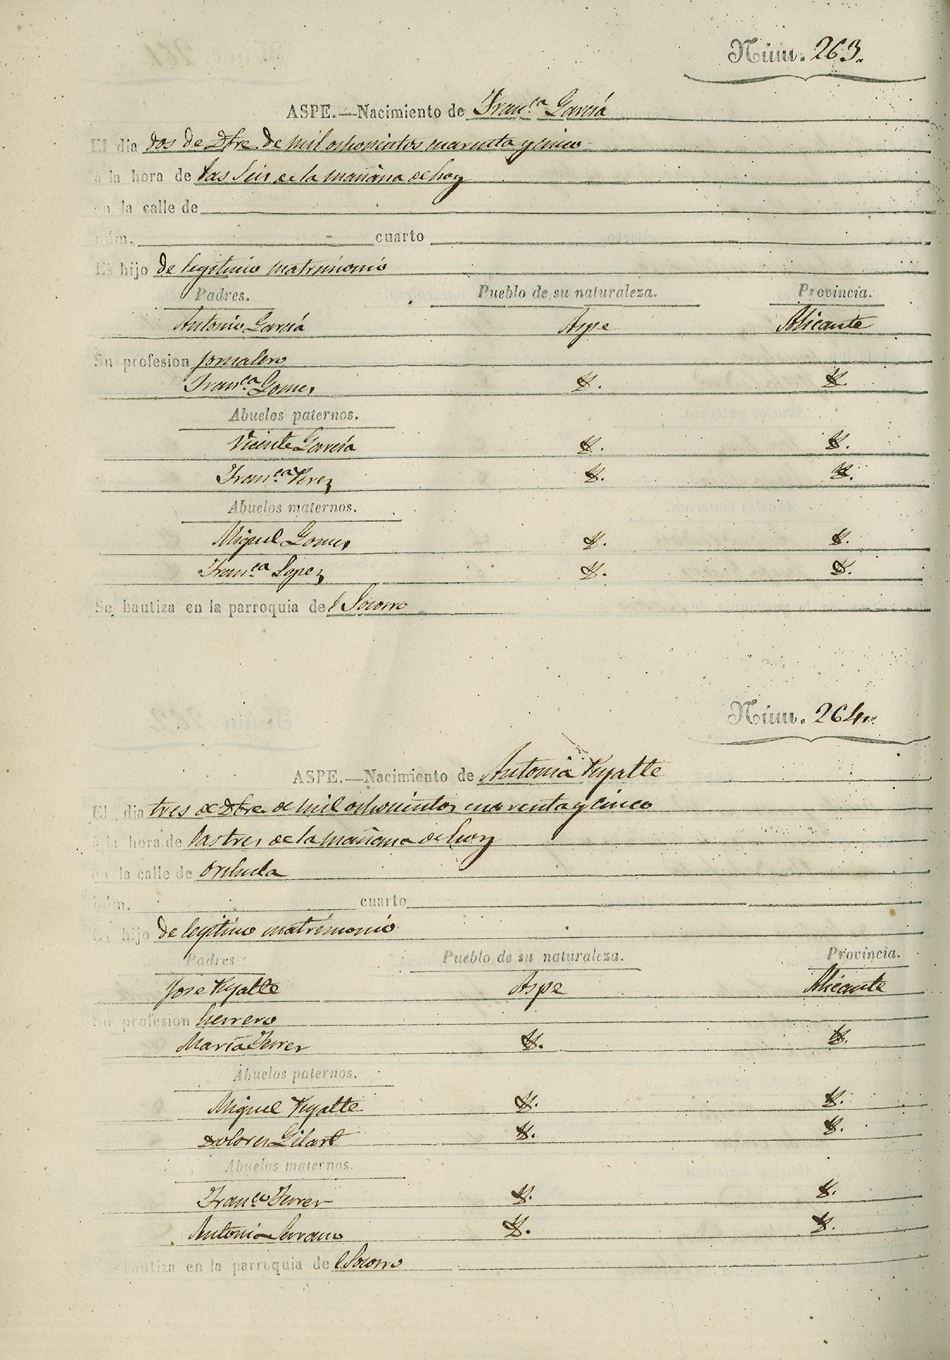 Núm. 263.
ASPE.—Nacimiento de Fran.ca García
El dia dos de Dbre. de mil ochocientos cuarenta y cinco
á la hora de las seis de la mañana de hoy
en la calle de
núm. cuarto
Es hijo de legitimo matrimonio
Padres. Pueblo de su naturaleza. Provincia.
Antonio García Aspe Alicante
Su profesion jornalero
Fran.ca Gomes
Abuelos paternos.
Vicente García
Fran.ca Perez
Abuelos maternos.
Miguel Gomes
Fran.ca Lopez
Se bautiza en la parroquia del Socorro
Núm. 264.
ASPE.—Nacimiento de Antonia
El dia tres de Dbre. de mil ochocientos cuarenta y cinco
á la hora de las tres de la mañana de hoy
en la calle de Orihuela
núm. cuarto
Es hijo de legitimo matrimonio
Padres Pueblo de su naturaleza. Provincia.
Jose Aspe Alicante
Su profesion herrero
Maria Ferrer
Abuelos paternos.
Miguel
Dolores
Abuelos maternos.
Fran.co Ferrer
Antonia Serrano
Se bautiza en la parroquia del Socorro